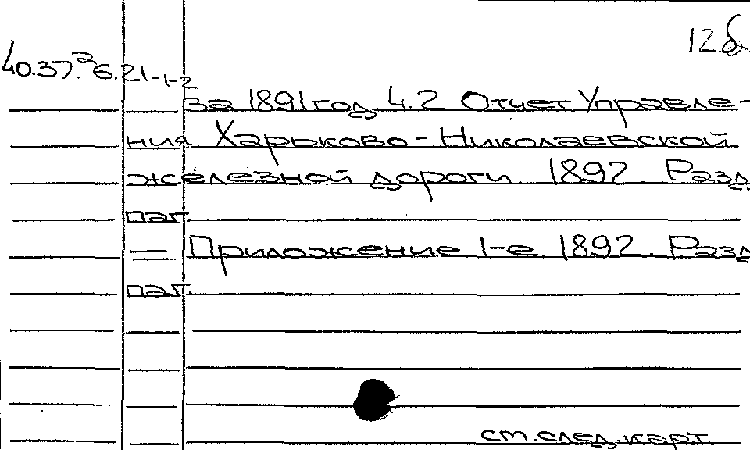 12б
40.37.3 6.21-1-2
За 1891 год Ч.2 Отчет Управле-
ния Харьково-Николаевской
железной дороги 1892. Разд.
паг.
— Приложение 1-е. 1892. Разд.
паг.
см.след.карт.